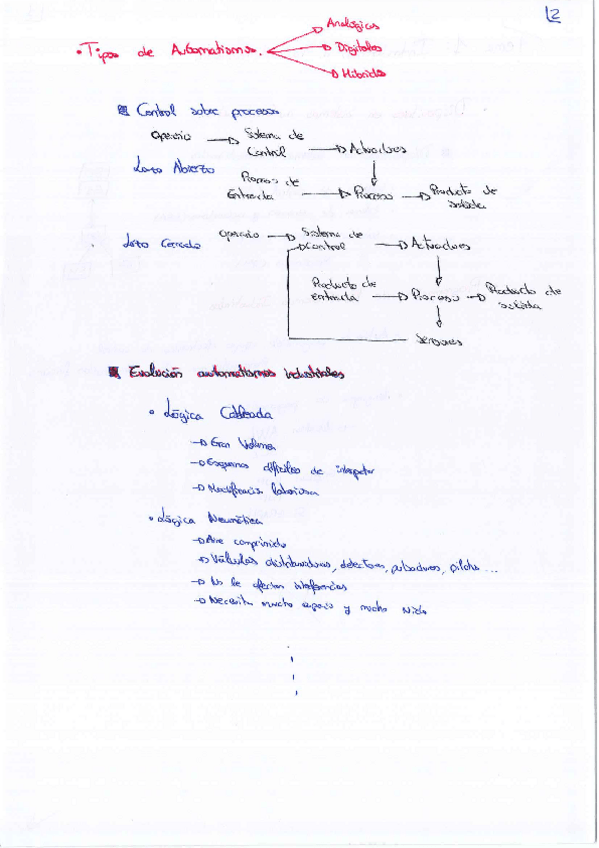 2
Analógicos
• Tipos de Automatismos.
Digitales
Híbridos
Control sobre procesos
Operario → Sistema de Control → Actuadores
Lazo Abierto
Entrada → Proceso → Producto de salida
Lazo Cerrado
Operario → Sistema de Control → Actuadores
Producto de entrada → Proceso → Producto de salida
Sensores
Evolución automatismos industriales
• Lógica Cableada
→ Gran Volumen
→ Esquemas difíciles de interpretar
→ Modificación laboriosa
• Lógica Neumática
→ Aire comprimido
→ Válvulas distribuidoras, detectores, pulsadores, pilotos ...
→ No le afectan interferencias
→ Necesita mucho espacio y mucho ruido